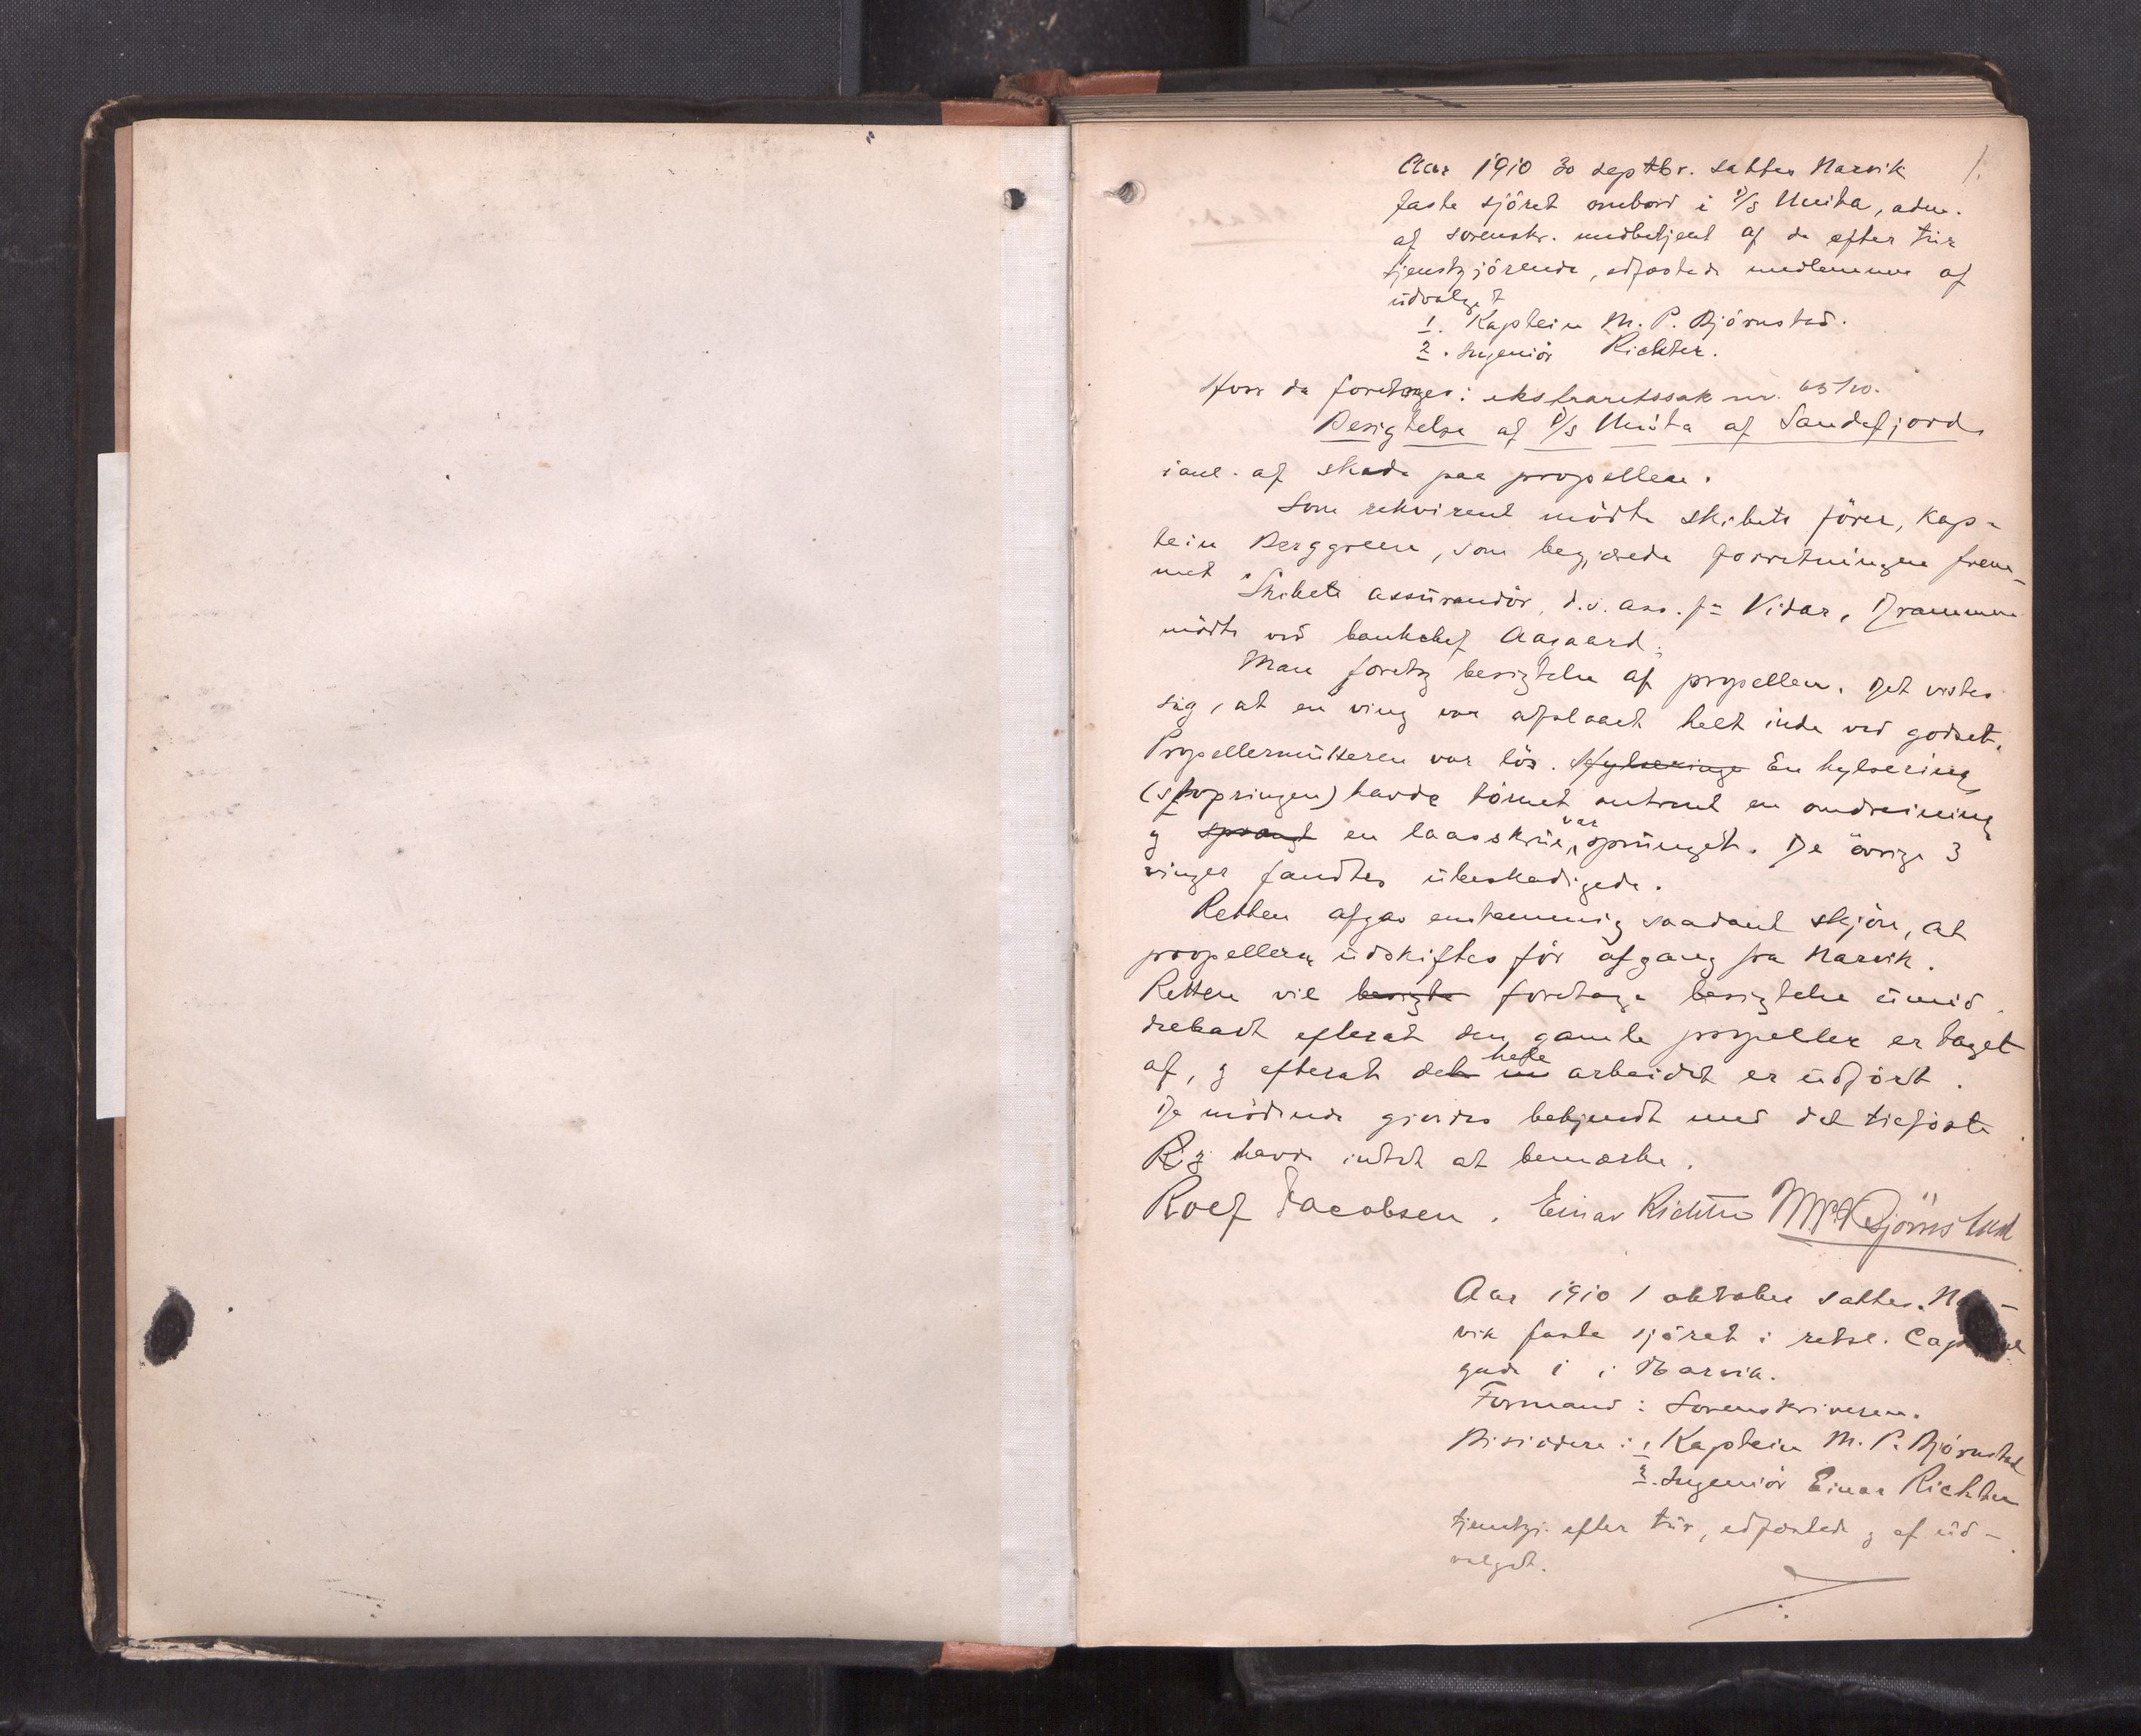 1.
Aar 1910 30 septbr. sattes Narvik
faste sjöret ombord i d/s Unita, adm.
af sorenskr. medbetjent af de efter tur
tjenstgjörende, edfæstede medlemmer af
udvalget
1. Kaptein M. P. Björnstad.
2. Ingeniör Richter.
Hvor da foretoges: ekstraretssak nr.
Besigtelse af d/s Unita af Sandefjord
i anl. af skade paa propellen.
Som rekvirent mödte skibets förer, kap-
tein Berggreen, som begjærede forretningen frem-
met. Skibets assurandör, d.v. ass. f= Vidar, Drammen
mödte ved bankchef Aagaard.
Man foretog besigtelse af propellen. Det vistes
sig, at en ving var afslaaet helt inde ved godset.
Propellermutteren var lös. Hylseringe En hylsering
(stopringen) havde törnet omtrent en omdreining
og sprængt en laasskrue var sprunget. De övrige 3
vinger fandtes ubeskadigede.
Retten afgav enstemmig saadant skjön, at
propelleren udskiftes för afgang fra Narvik.
Retten vil besigte foretage besigtelse umid
delbart efterat den gamle propeller er taget
af, og efterat det hele arbeidet er udfört.
De mödende gjordes bekjendt med det tilförte
og havde intet at bemærke.
Rolf Jacobsen. Einar Richter M. P. Björnstad
Aar 1910 1 oktober sattes Nar-
vik faste sjöret i retsl. Cap
gade 1 i Narvik.
Formand: Sorenskriveren.
Bisiddere: 1. Kaptein M. P. Björnstad
2. Ingeniör Einar Richter
tjenstgj. efter tur, edfæstede og af ud-
valget.